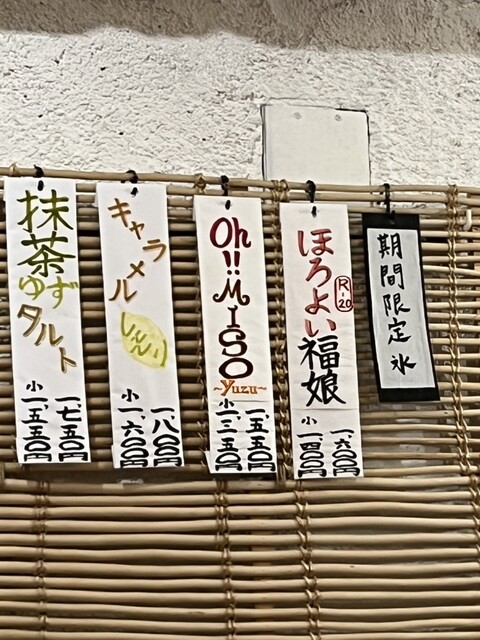 期間限定氷
ほろよい福娘
R-20
一、六〇〇円
小一、四〇〇円
Oh!!MISO
~yuzu~
一、五五〇円
小一、三五〇円
キャラメル
れもん
一、八〇〇円
小一、六〇〇円
抹茶
ゆず
タルト
一、七五〇円
小一、五五〇円